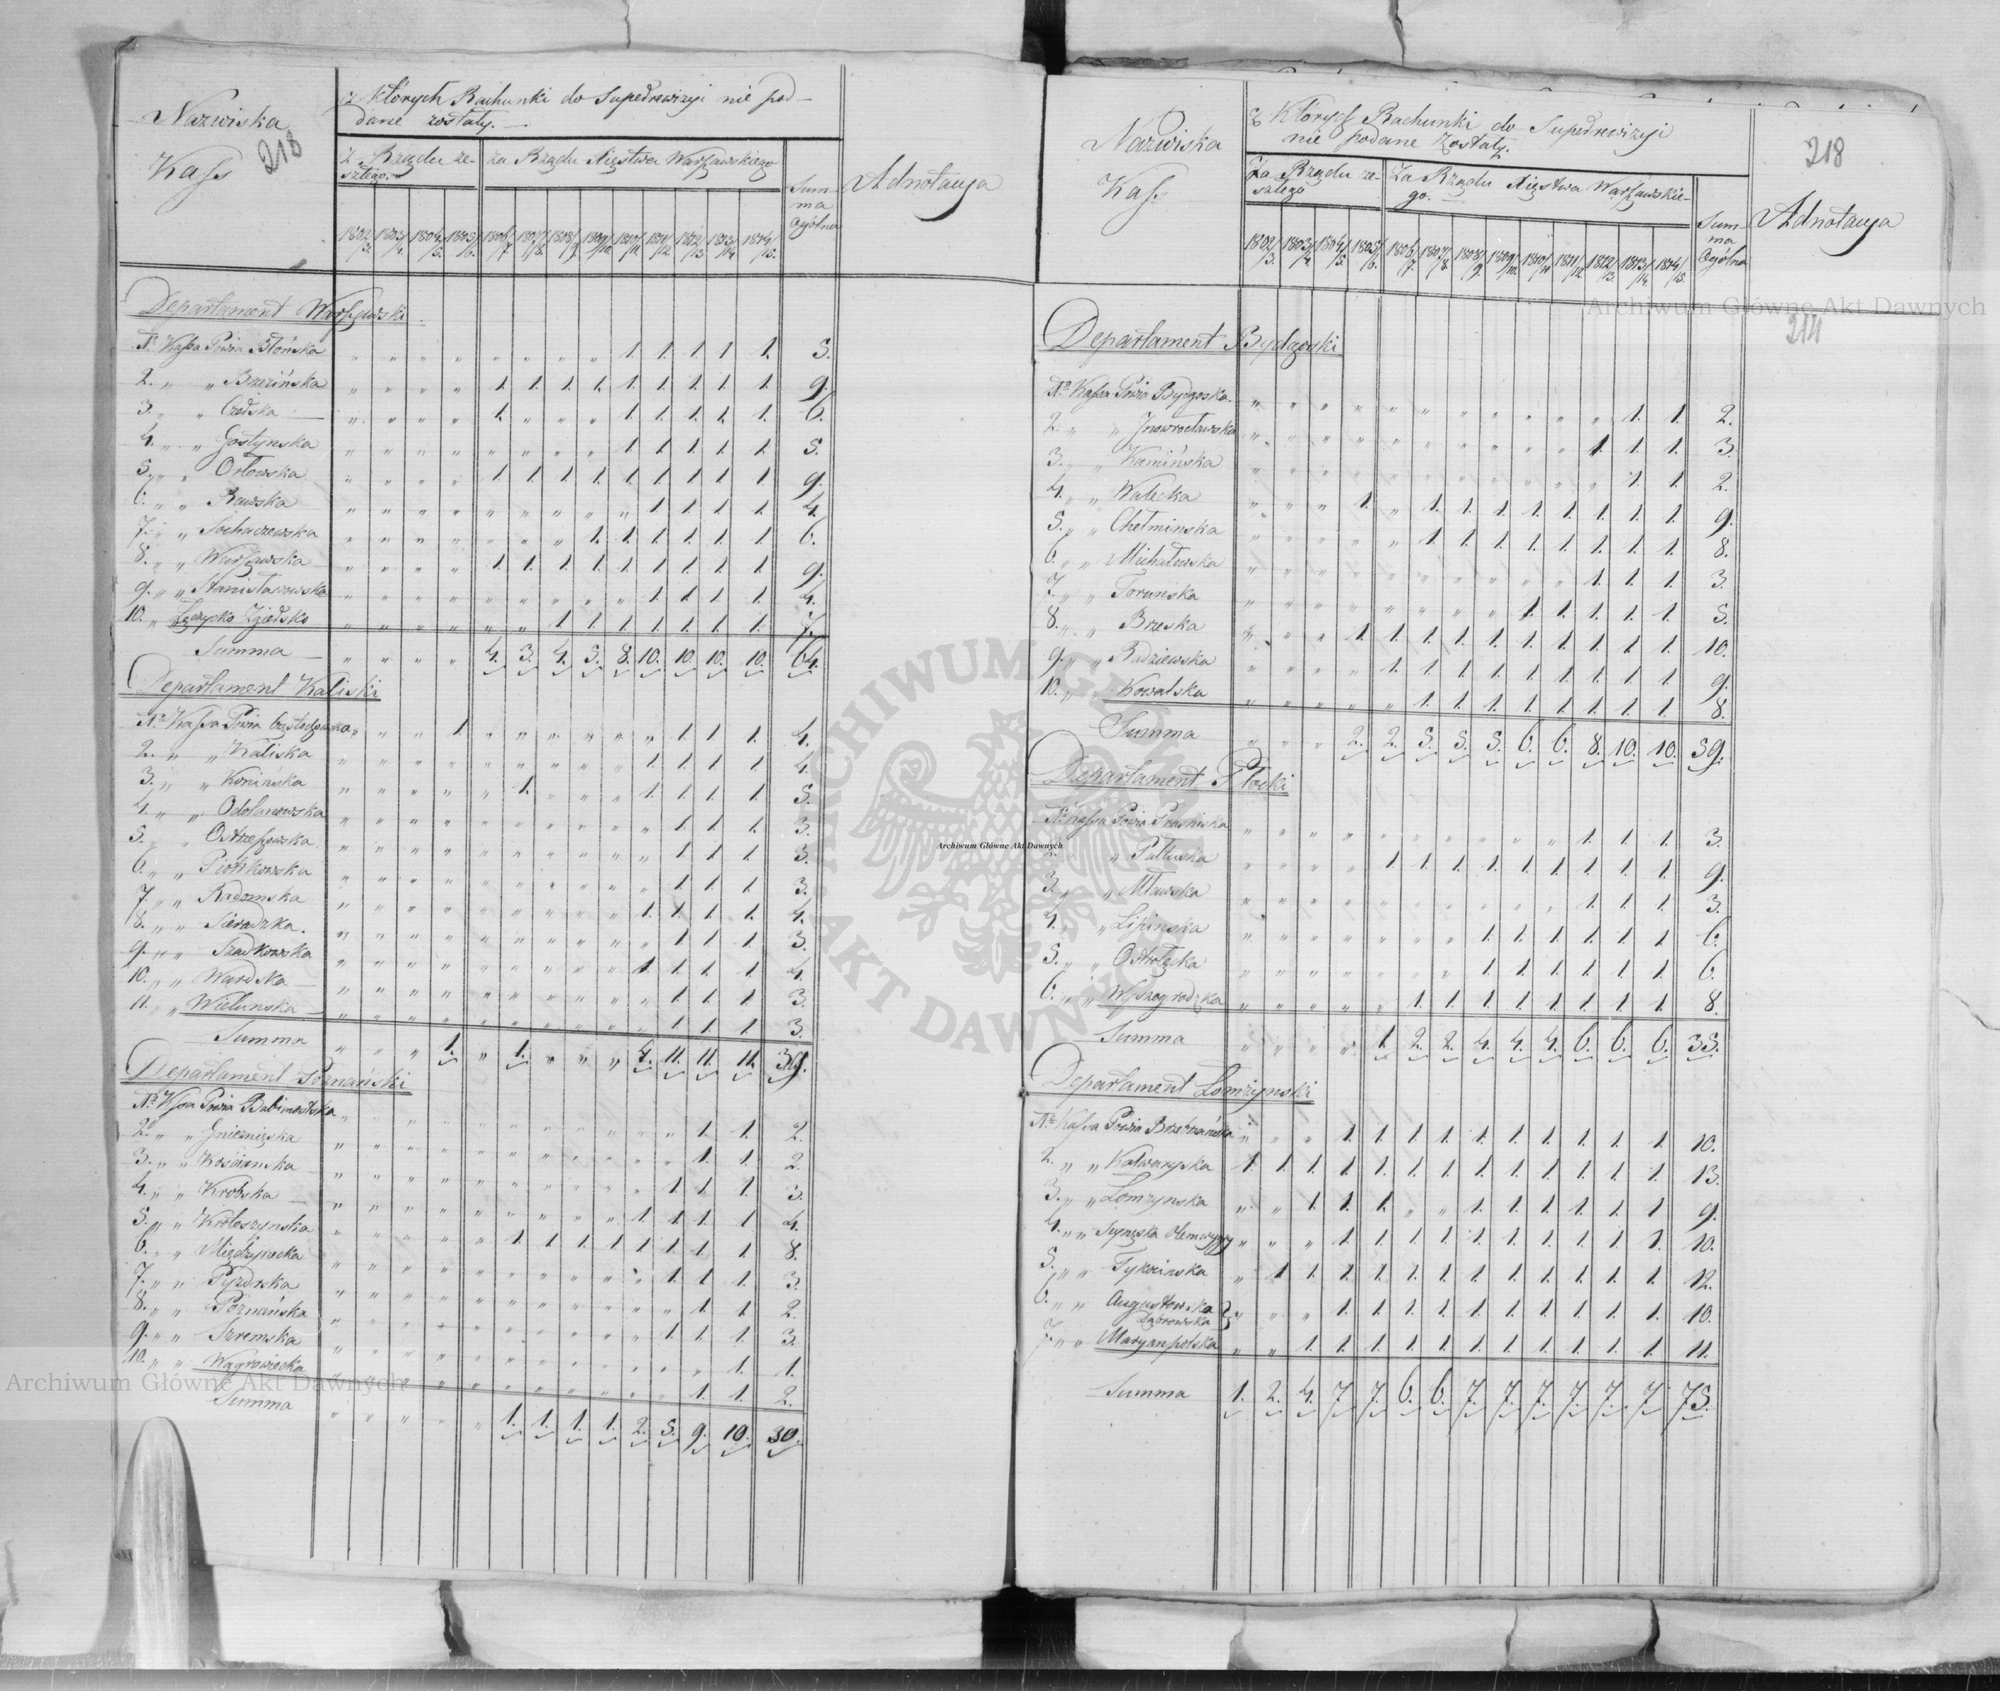 Nazwiska
Kass
218
z których Rachunki do Superrewizyi nie po-
dane zostały.
Z Rządu ze-
szłego.
za Rządu Xięstwa Warszawskiego
Summa
Ogólna
Adnotacya
1802/3. 1803/4. 1804/5. 1805/6. 1806/7. 1807/8. 1808/9. 1809/10. 1810/11. 1811/12. 1812/13. 1813/14. 1814/15.
Departament Warszawski
No 1 Kassa Powia Błońska " " " " " " " " 1. 1. 1. 1. 1. 5.
2. " " Brzezińska " " " " 1. 1. 1. 1. 1. 1. 1. 1. 1. 9.
3. " " Czerska " " " " 1. " " " 1. 1. 1. 1. 1. 6.
4. " " Gostynska " " " " " " " " 1. 1. 1. 1. 1. 5.
5. " " Orłowska " " " " 1. 1. 1. 1. 1. 1. 1. 1. 1. 9.
6. " " Rawska " " " " " " " " " 1. 1. 1. 1. 4.
7. " " Sochaczewska " " " " " " " 1. 1. 1. 1. 1. 1. 6.
8. " " Warszawska " " " " 1. 1. 1. 1. 1. 1. 1. 1. 1. 9.
9. " " Stanisławowska " " " " " " " " " 1. 1. 1. 1. 4.
10. " Łęczycko Zgierska " " " " " " 1. 1. 1. 1. 1. 1. 1. 7.
Summa " " " " 4. 3. 4. 5. 8. 10. 10. 10. 10. 64.
Departament Kaliski
No Kassa Powia Częstochowska " " " 1 " " " " " " 1. 1. 1. 4.
2. " " Kaliska " " " " " " " " " 1. 1. 1. 1. 4.
3. " " Koninska " " " " " 1. " " " 1. 1. 1. 1. 5.
4. " " Odolanowska " " " " " " " " " " 1. 1. 1. 3.
5. " " Ostrzeszowska " " " " " " " " " " 1. 1. 1. 3.
6. " " Piotrkowska " " " " " " " " " " 1. 1. 1. 3.
7. " " Radomska " " " " " " " " " 1. 1. 1. 1. 4.
8. " " Sieradzka " " " " " " " " " " 1. 1. 1. 3.
9. " " Szadkowska " " " " " " " " " 1. 1. 1. 1 4.
10. " " Wardska " " " " " " " " " " 1. 1. 1 3.
11. " " Wielunska " " " " " " " " " " 1. 1. 1 3.
Summa " " " 1. " 1. " " " 4. 11. 11. 11. 39.
Departament Poznański
No Kassa Powia Babimostska " " " " " " " " " " " 1. 1. 2.
2. " " Gnieznieska " " " " " " " " " " " 1. 1. 2.
3. " " Kościanska " " " " " " " " " " 1. 1. 1. 3.
4. " " Krobska " " " " " " " " " 1. 1. 1. 1 4.
5. " " Krotoszynska " " " " " 1. 1. 1. 1. 1. 1. 1. 1 8.
6. " " Międzyrzecka " " " " " " " " " " 1. 1. 1. 3.
7. " " Pyzdrska " " " " " " " " " " " 1. 1 2.
8. " " Poznańska " " " " " " " " " " 1. 1. 1 3.
9. " " Szremska " " " " " " " " " " " " 1. 1.
10. " " Wągrowiecka " " " " " " " " " " " 1. 1. 2.
Summa " " " " " 1. 1. 1. 1. 2. 5. 9. 10. 30.
Nazwiska
Kass
z których Rachunki do Superrewizyi
nie podane zostały.
Za Rządu ze-
szłego
Za Rządu Xięstwa Warszawskie-
go.
Summa
Ogólna
218
Adnotacya
214
1802/3. 1803/4. 1804/5. 1805/6. 1806/7. 1807/8. 1808/9. 1809/10. 1810/11. 1811/12. 1812/13. 1813/14. 1814/15.
Departament Bydgoski
No Kassa Powia Bydgoska " " " " " " " " " " " 1. 1. 2.
2. " " Jnowrocławska " " " " " " " " " " 1. 1. 1. 3.
3. " " Kamińska " " " " " " " " " " " 1. 1. 2.
4. " " Wałecka " " " 1. " 1. 1. 1. 1. 1. 1. 1. 1. 9.
5. " " Chełminska " " " " " 1. 1. 1. 1. 1. 1. 1. 1. 8.
6. " " Michałowska " " " " " " " " " " 1. 1. 1. 3.
7. " " Torunska " " " " " " " " 1. 1. 1. 1. 1. 5.
8. " " Brzeska " " " 1. 1. 1. 1. 1. 1. 1. 1. 1. 1. 10.
9. " " Radziewska " " " " 1. 1. 1. 1. 1. 1. 1. 1. 1. 9.
10. " " Kowalska " " " " " 1. 1. 1. 1. 1. 1. 1. 1. 8.
Summa " " " 2. 2. 5. 5. 5. 6. 6. 8. 10. 10. 59.
Departament Płocki
No Kassa Powia Prasniska " " " " " " " " " " 1. 1. 1. 3.
2. " Pułtuska " " " " 1. 1. 1. 1. 1. 1. 1. 1. 1. 9.
3. " " Mławska " " " " " " " " " " 1. 1. 1. 3.
4. " Lipinska " " " " " " " 1. 1. 1. 1. 1. 1 6.
5. " Ostrołęcka " " " " " " " 1. 1. 1. 1. 1. 1. 6.
6. " " Wyszogrodzka " " " " " 1. 1. 1. 1. 1. 1. 1. 1. 8.
Summa " " " " 1. 2. 2. 4. 4. 4. 6. 6. 6. 35.
Departament Łomżynski
No Kassa Powia " " " 1. 1. 1. 1. 1. 1. 1. 1. 1. 1 10.
2. " " Kalwaryska 1. 1. 1. 1. 1. 1. 1. 1. 1. 1. 1. 1. 1. 13.
3. " " Łomżynska " " 1. 1. 1. " " 1. 1. 1. 1. 1. 1. 9.
4. " " " " " 1. 1. 1. 1. 1. 1. 1. 1. 1. 1. 10.
5. " " Tykocinska " 1 1. 1. 1. 1. 1. 1. 1. 1. 1. 1. 1. 12.
6. " " Augustowska " " " 1. 1. 1. 1. 1. 1. 1. 1. 1. 1. 10.
Dąbrowska
7. " " Maryampolska " " 1. 1. 1. 1. 1. 1. 1. 1. 1. 1. 1. 11.
Summa 1. 2. 4. 7. 7. 6. 6. 7. 7. 7. 7. 7. 7. 75.
Archiwum Główne Akt Dawnych
Archiwum Główne Akt Dawnych
Archiwum Główne Akt Dawnych
ARCHIWUM GŁÓWNE AKT DAWNYCH